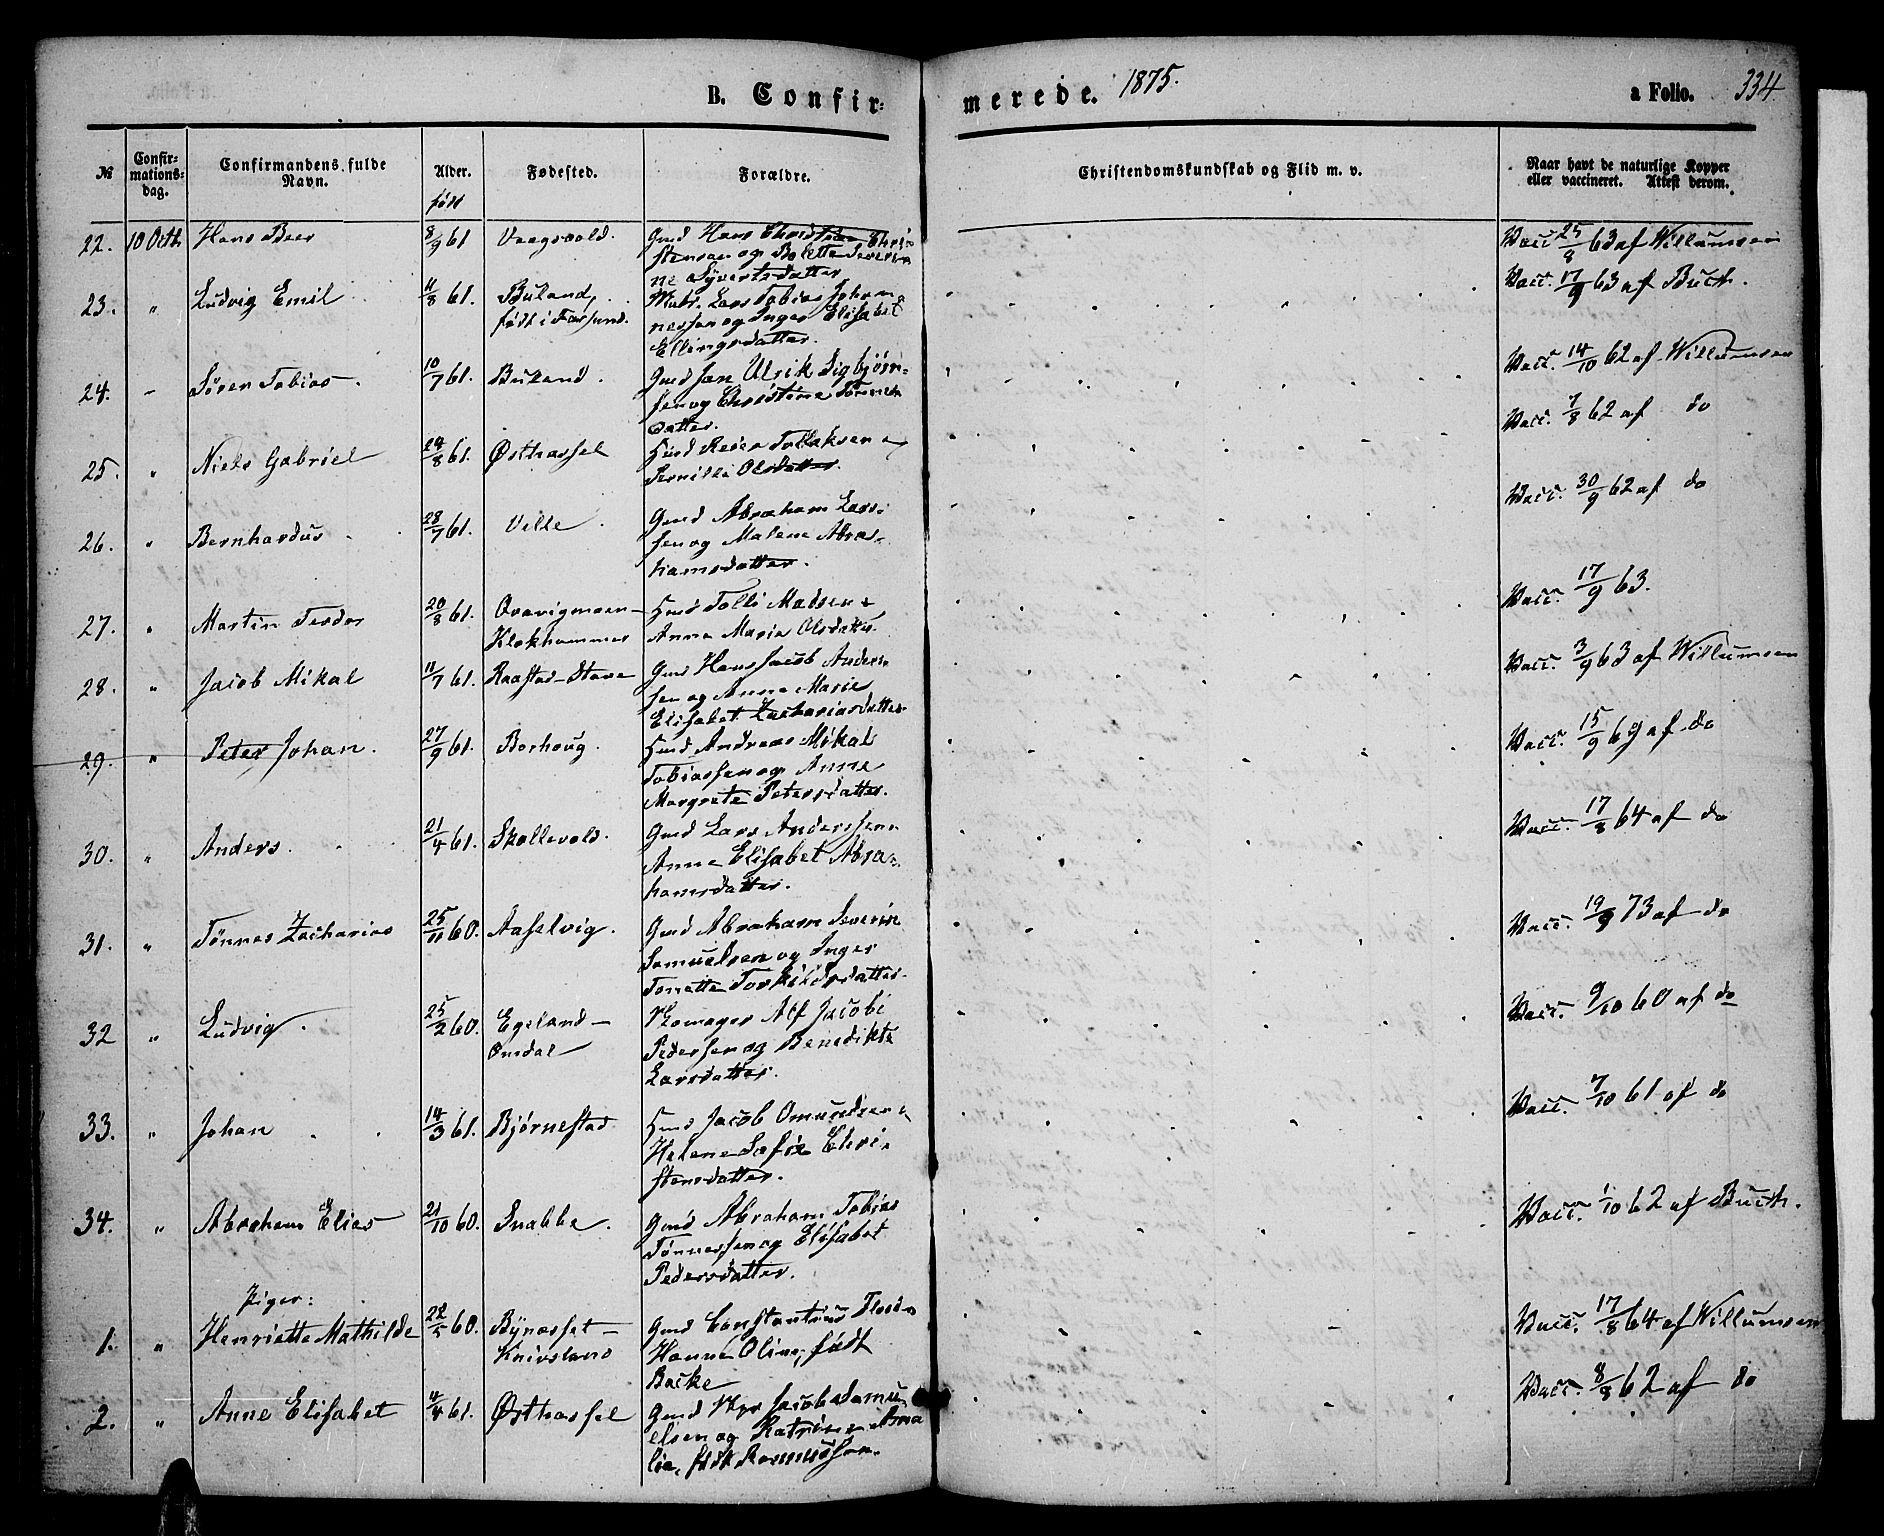 B. Confir= merede. 1875. a Folio. 334.
№ Confir=mations=dag. Confirmandens fulde Navn. Alder. Fødested. Forældre. Christendomskundskab og Flid m. v. Naar havt de naturlige Kopper eller vaccineret. Attest derom.
født
22. 10 Octb Hans Beer 8/9 61 Vaagsvold. Gmd Hans Christian Chri=
stensen og Bolette Severi=
ne Syvertsdatter Vacc 25/8 63 af Willumsen
23. " Ludvig Emil 11/8 61. Buland, Matr. Lars Tobias Johan=
født i Farsund. nessen og Inger Elisabet
Ellingsdatter. Vacc. 17/9 63 af Buch.
24. " Søren Tobias. 10/7 61. Buland. Gmd Jan Ulrik Sigbjørn=
sen og Christine Tønnes
datter. Vacc. 14/10 62 af Willumsen
25. " Niels Gabriel 24/8 61. Østhassel Hmd Reier Tollaksen
Pernille Olsdatter. Vacc. 7/8 62 af do
26. " Bernhardus 28/7 61. Velle. Gmd Abraham Lars=
sen og Malene Abra=
hamsdatter. Vacc. 30/9 62 af do
27. " Martin Teodor 20/8 61. Oravigmoen= Hmd Tolle Madsen
Klokhammer Anne Marie Olsdatter. Vacc. 17/9 63.
28. " Jacob Mikal 11/7 61. Raastad-Stave Gmd Hans Jacob Ander=
sen og Anne Marie
Elisabet Zachariasdatter Vacc. 3/9 63 af Willumsen
29. " Peter Johan. 27/9 61. Borhoug. Hmd Andreas Mikal
Tobiassen og Anne
Margrete Petersdatter. Vacc. 15/9 69 af do
30. " Anders. 21/4 61. Skollevold. Gmd Lars Anderssen
Anne Elisabet Abra=
hamsdatter. Vacc. 17/8 64 af do
31. " Tønnes Zacharias 25/11 60. Aaselvig. Gmd Abraham Severin
Samuelsen og Inger
Tonette Torkildsdatter. Vacc. 19/9 73 af do
32 " Ludvig. 25/2 60. Egeland- Skomager Alf Jacob
Omdal Pedersen og Benedikte
Larsdatter. Vacc. 9/10 60 af do
33. " Johan 14/3 61. Bjørnestad Hmd Jacob Omundsen
Helene Sofie Chri=
stensdatter. Vacc. 7/10 61 af do
34. " Abraham Elias 21/10 60. Snabbe. Gmd Abraham Tobias
Tønnessen og Elisabet
Pedersdatter. Vacc. 1/10 62 af Buch.
Piger:
1. " Henriette Mathilde 60. Gmd Constantius
Knivsland Hanne Oline, født
Backe Vacc. 17/8 64 af Willumsen
2. " Anne Elisabet 61. Østhassel Gmd Jacob Samu=
elsen og Katrine Ama
lia, født Rasmussen. Vacc. 8/8 62 af do